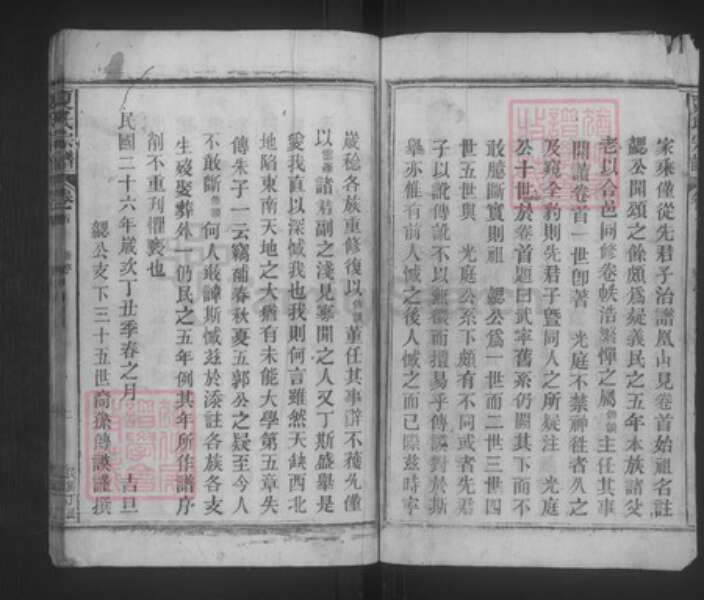 家乘僅從先君子治譜凰山見卷首始祖名註
勰公閱頌之餘頗為疑義民之五年本族諸父
老以合邑同修卷帙浩繁憚之屬傳談主任其事
開譜卷首一世卽著 光庭不禁神往者久之
及窺全豹則先君子暨同人之所疑注 光庭
公十世於卷首題曰武寧舊系仍闕其下而不
敢臆斷實則祖 勰公為一世而二世三世四
世五世與 光庭公系下頗有不同或者先君
子以訛傳訛不以無徵而擅易乎傳談對於斯
舉亦惟有前人憾之後人憾之而已際兹時寧
歲稔各族重修復以傳談董任其事辭不獲允僅
以 諸君副之淺見寡聞之人又丁斯盛舉是
愛我直以深憾我也我則何言雖然天缺西北
地陷東南天地之大猶有未能大學第五章失
傳朱子一一云竊補春秋夏五郭公之疑至今人
不敢斷傳談何人敢諱斯憾兹於添註各族各支
生歿娶葬外一仍民之五年例其年所作譜序
削不重刊懼褻也
民國二十六年歲次丁丑季春之月 吉旦
勰公支下三十五世裔孫傳談謹撰